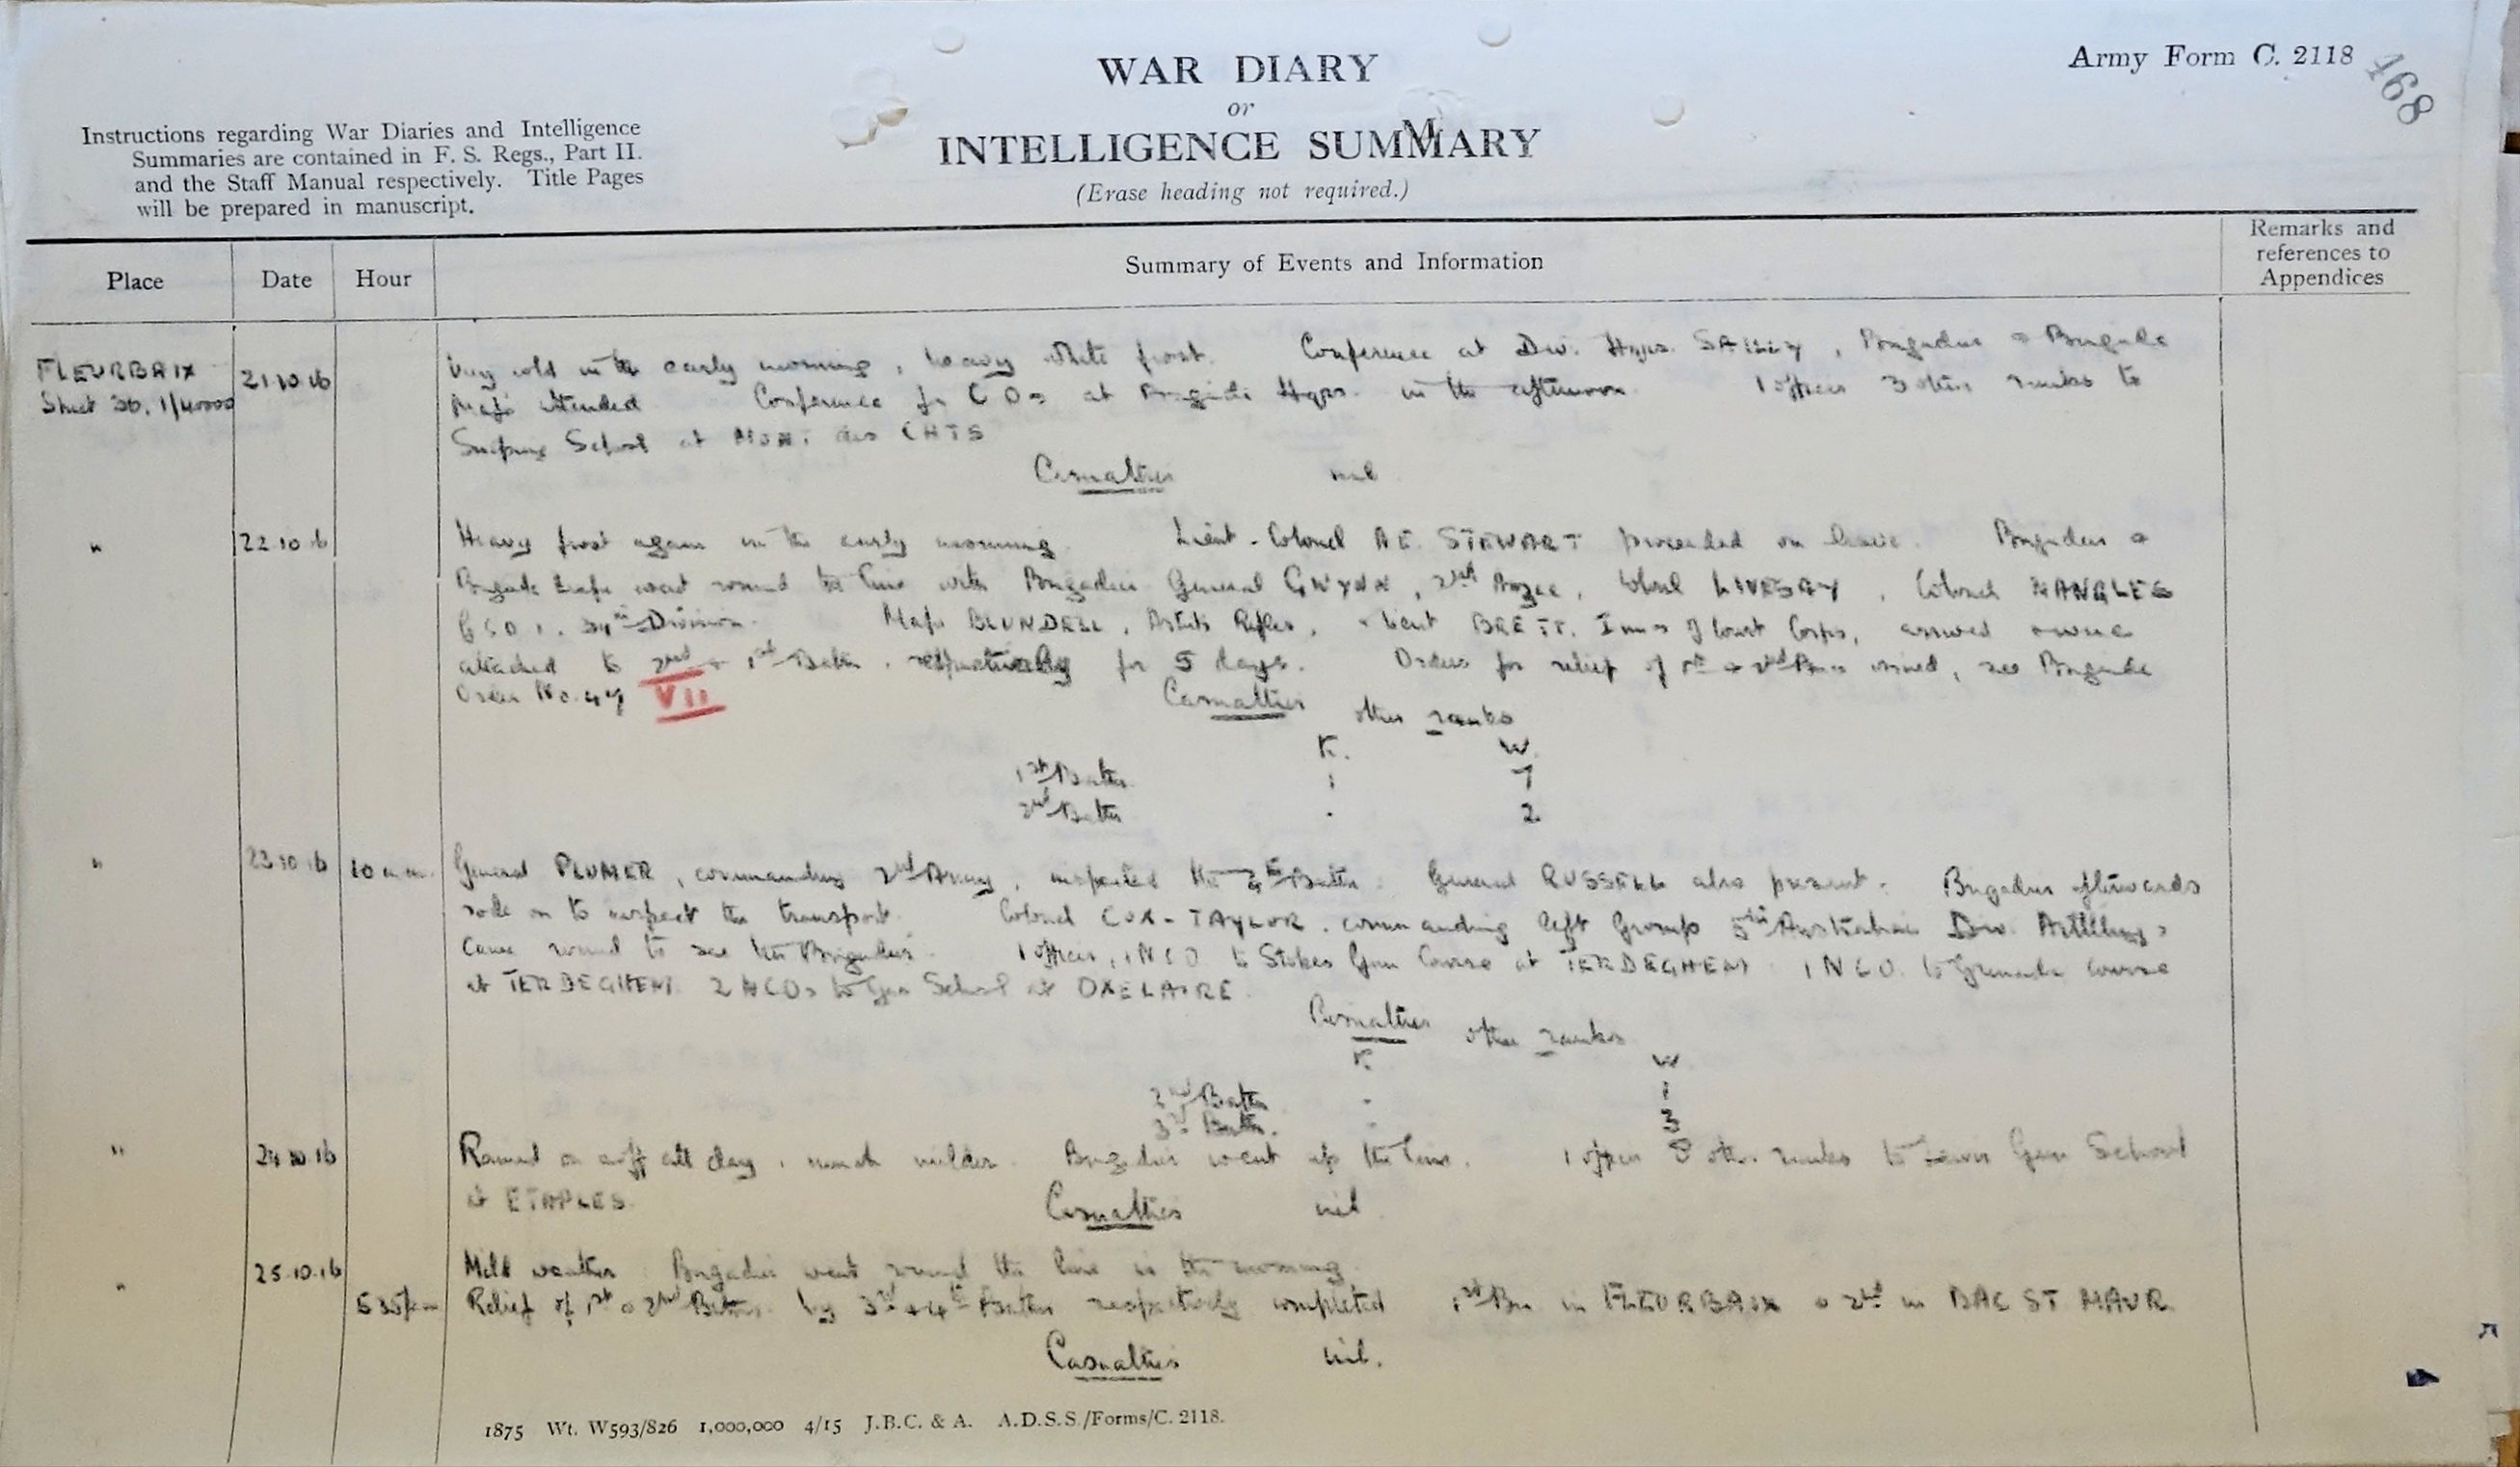 Army Form C. 2118
468
WAR DIARY
or
INTELLIGENCE SUMMARY
(Erase heading not required.)
Instructions regarding War Diaries and Intelligence
Summaries are contained in F. S. Regs., Part II.
and the Staff Manual respectively. Title Pages
will be prepared in manuscript.
Place Date Hour Summary of Events and Information Remarks and references to Appendices
FLEURBAIX 21.10.16 Very cold in the early morning, heavy white frost. Conference at Div. Hqrs. SAILLY, Brigadier & Brigade
Sheet 36. 1/40000 Major attended Conference for C Os at Brigade Hqrs. in the afternoon 1 officer 3 other ranks to
Sniping School at MONT des CATS
Casualties nil
" 22.10.16 Heavy frost again in the early morning. Lieut-Colonel A.E. STEWART proceeded on leave. Brigadier &
Brigade Major went round the line with Brigadier General GWYNN, 2nd Anzac, Colonel LIVESAY, Colonel MANGLES
GSO 1. 34th Division. Major BLUNDELL, Artists Rifles, & Lieut BRETT, Inns of Court Corps, arrived & were
attached to 2nd & 1st Battn. respectively for 5 days. Orders for relief of 1st & 2nd Bns issued, see Brigade
Order No. 47 VII
Casualties other ranks
K. W.
1st Battn 1 7
2nd Battn - 2
" 23.10.16 10 a.m. General PLUMER, commanding 2nd Army, inspected the 4th Battn. General RUSSELL also present. Brigadier afterwards
rode on to inspect the transport. Colonel COX-TAYLOR, commanding left Group 5th Australian Div. Artillery,
came round to see the Brigadier. 1 officer, 1 NCO to Stokes Gun Course at TERDEGHEM 1 NCO. to Grenade Course
at TERDEGHEM. 2 NCOs to Gas School at OXELAIRE
Casualties other ranks
K W
2nd Battn - 1
3rd Battn. - 3
" 24.10.16 Rained on & off all day, much milder. Brigadier went up the line. 1 officer 8 other ranks to Lewis Gun School
at ETAPLES.
Casualties nil
" 25.10.16 Mild weather. Brigadier went round the line in the morning.
5 35 pm Relief of 1st & 2nd Battns. by 3rd & 4th Battns respectively completed 1st Bn in FLEURBAIX & 2nd in BAC ST MAUR
Casualties nil.
1875 Wt. W593/826 1,000,000 4/15 J.B.C. & A. A.D.S.S./Forms/C. 2118.